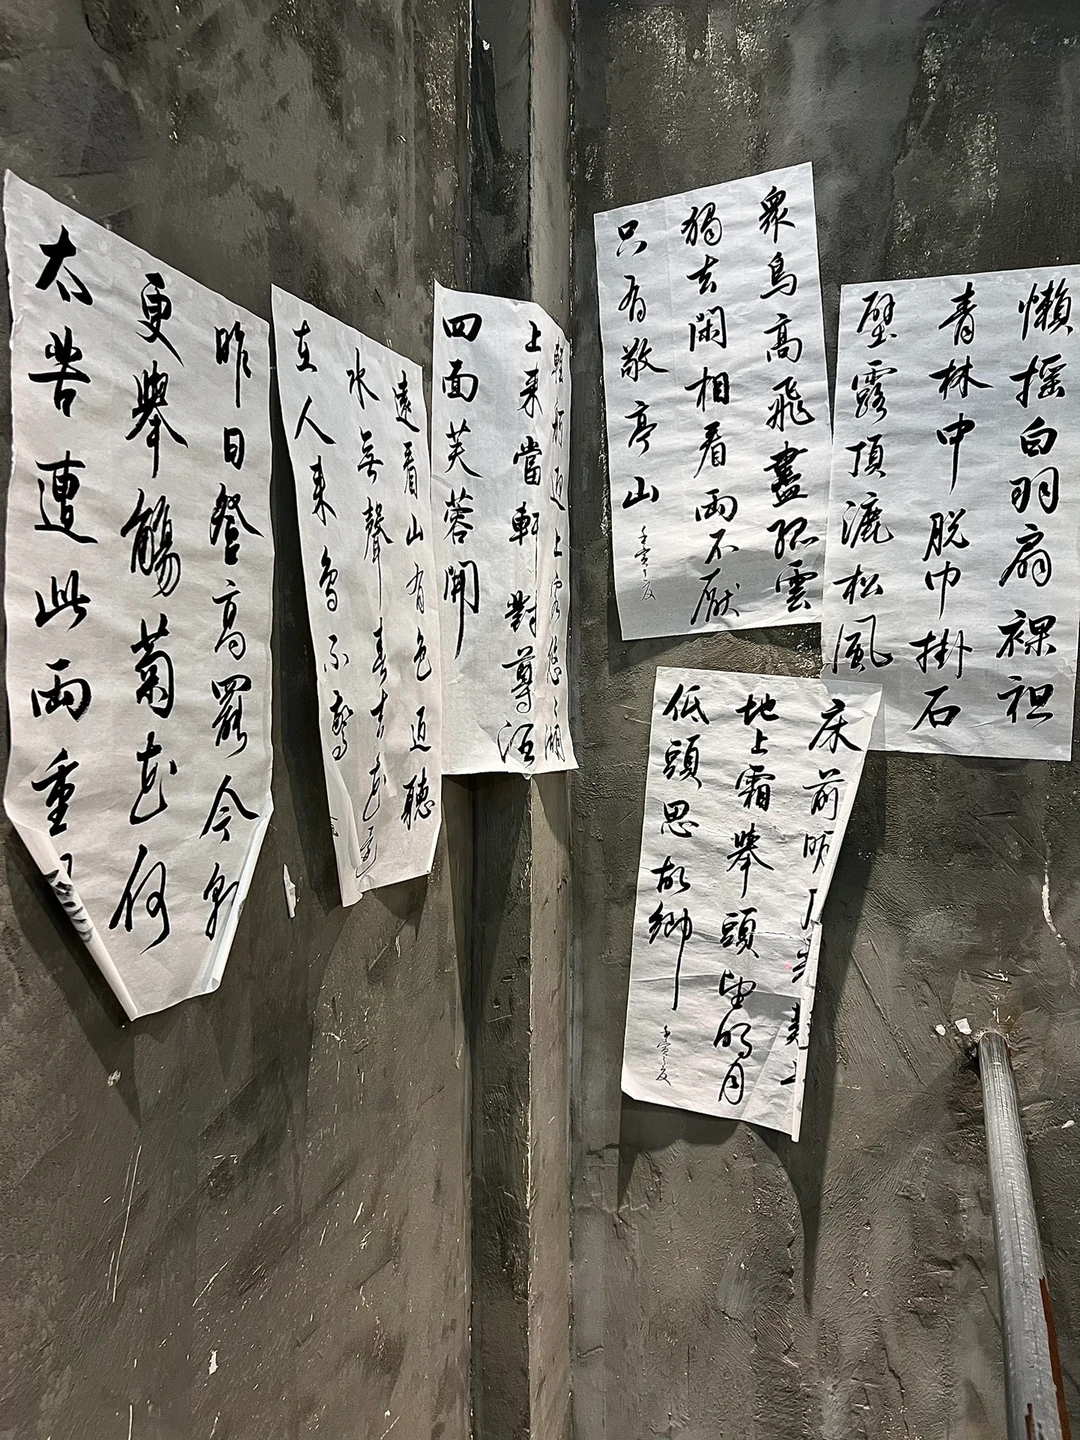 懶摇白羽扇裸袒
青林中脱巾掛石
壁露頂灑松風
衆鳥高飛盡孤雲
獨去閑相看兩不厭
只有敬亭山
壬寅之夏
床前明月光疑是
地上霜舉頭望明月
低頭思故鄉
壬寅之夏
輕舸迎上客悠悠湖
上来當軒對尊酒
四面芙蓉開
遠看山有色近聽
水無聲春去花還
在人来鳥不驚
昨日登高罷今朝
更舉觴菊花何
太苦遭此兩重